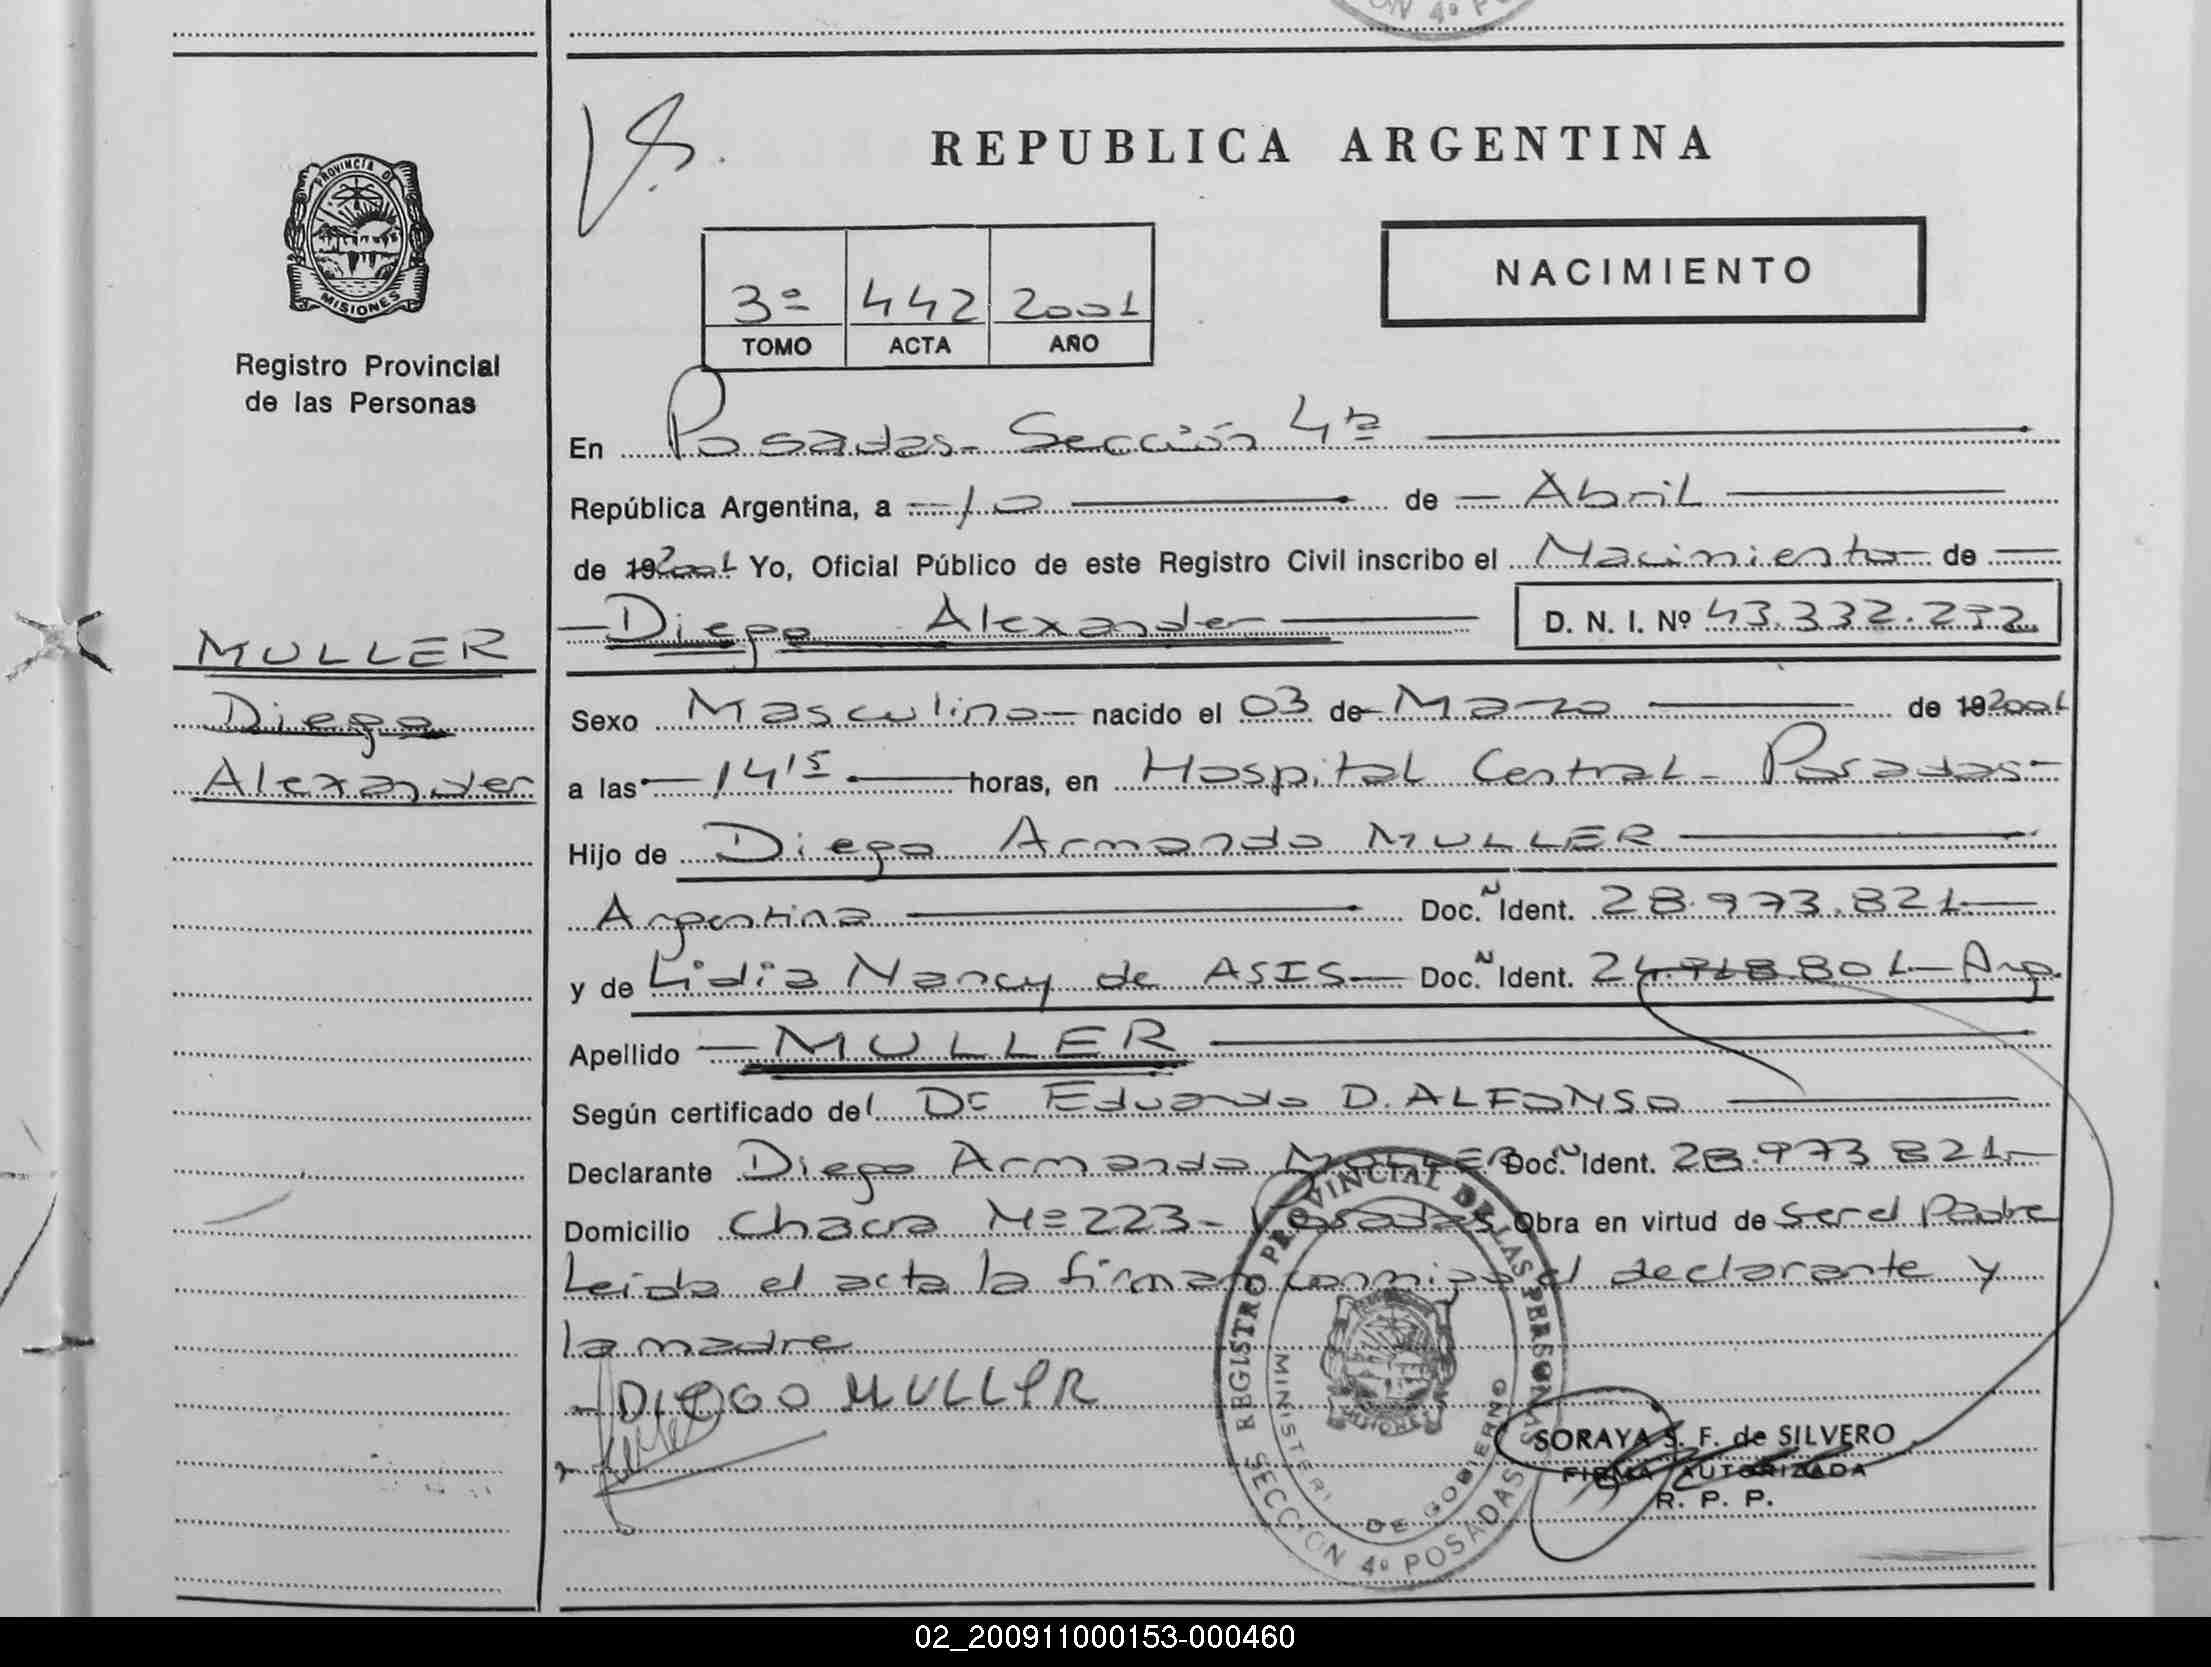 REPUBLICA ARGENTINA
PROVINCIA D
MISIONES
Registro Provincial
de las Personas
NACIMIENTO
3º 442 2001
TOMO ACTA AÑO
En Posadas - Sección 4ª
República Argentina, a - 10 de - Abril
de 19 2001 Yo, Oficial Público de este Registro Civil inscribo el Nacimiento de
- Diego Alexander D. N. I. Nº 43.332.232.
MULLER
Diego
Alexander
Sexo Masculino - nacido el 03 de - Marzo de 19 2001
a las - 14 15 - horas, en Hospital Central - Posadas -
Hijo de Diego Armando MULLER
Argentina Doc. Ident. 28.973.821 -
y de Lidia Nancy de ASIS - Doc. Ident. 24.918.801 - Arg.
Apellido - MULLER
Según certificado del Dr Eduardo D. ALFONSO
Declarante Diego Armando MULLER Doc. Ident. 28.973.821 -
Domicilio Chacra Nº 223 - Posadas Obra en virtud de ser el Padre
Leida el acta la firman conmigo el declarante y
la madre
- DIEGO MULLER
REGISTRO PROVINCIAL DE LAS PERSONAS
MINISTERI DE GOBIERNO
SECCION 4º POSADAS
SORAYA S. F. de SILVERO
FIRMA AUTORIZADA
R. P. P.
02_200911000153-000460